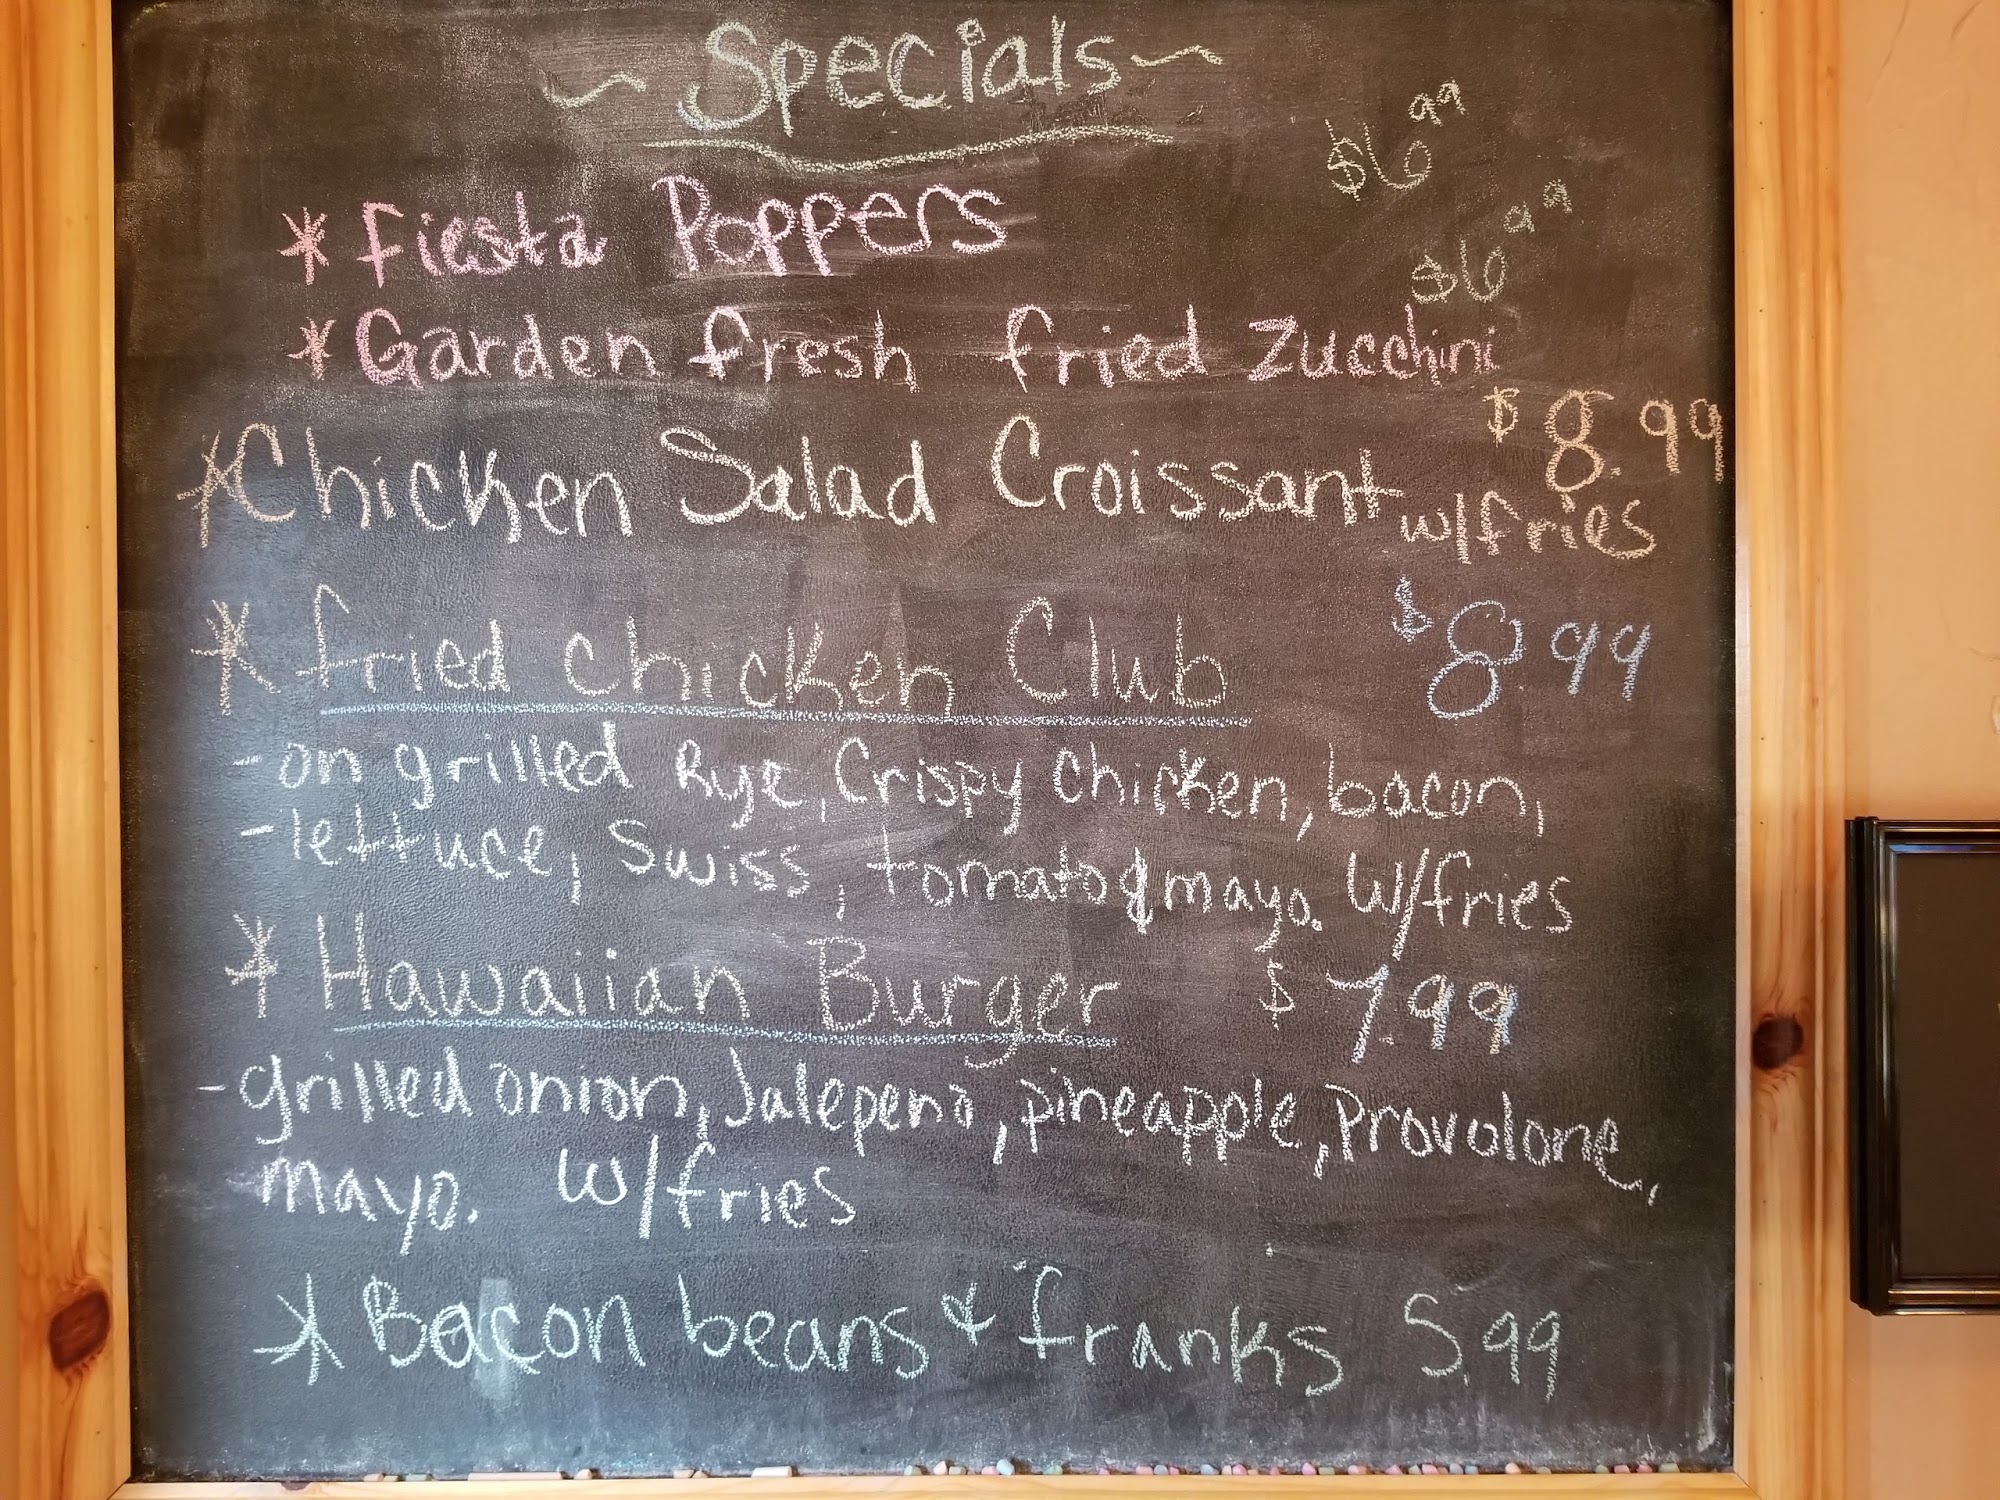 ~ Specials ~
* Fiesta Poppers $6.99
* Garden fresh fried zucchini $6.99
* Chicken Salad Croissant $8.99
w/fries
* fried chicken Club $8.99
- on grilled Rye, Crispy chicken, bacon,
- lettuce, Swiss, tomato & mayo. w/fries
* Hawaiian Burger $7.99
- grilled onion, Jalepeno, pineapple, Provolone,
- mayo. w/fries
* Bacon beans & franks 5.99